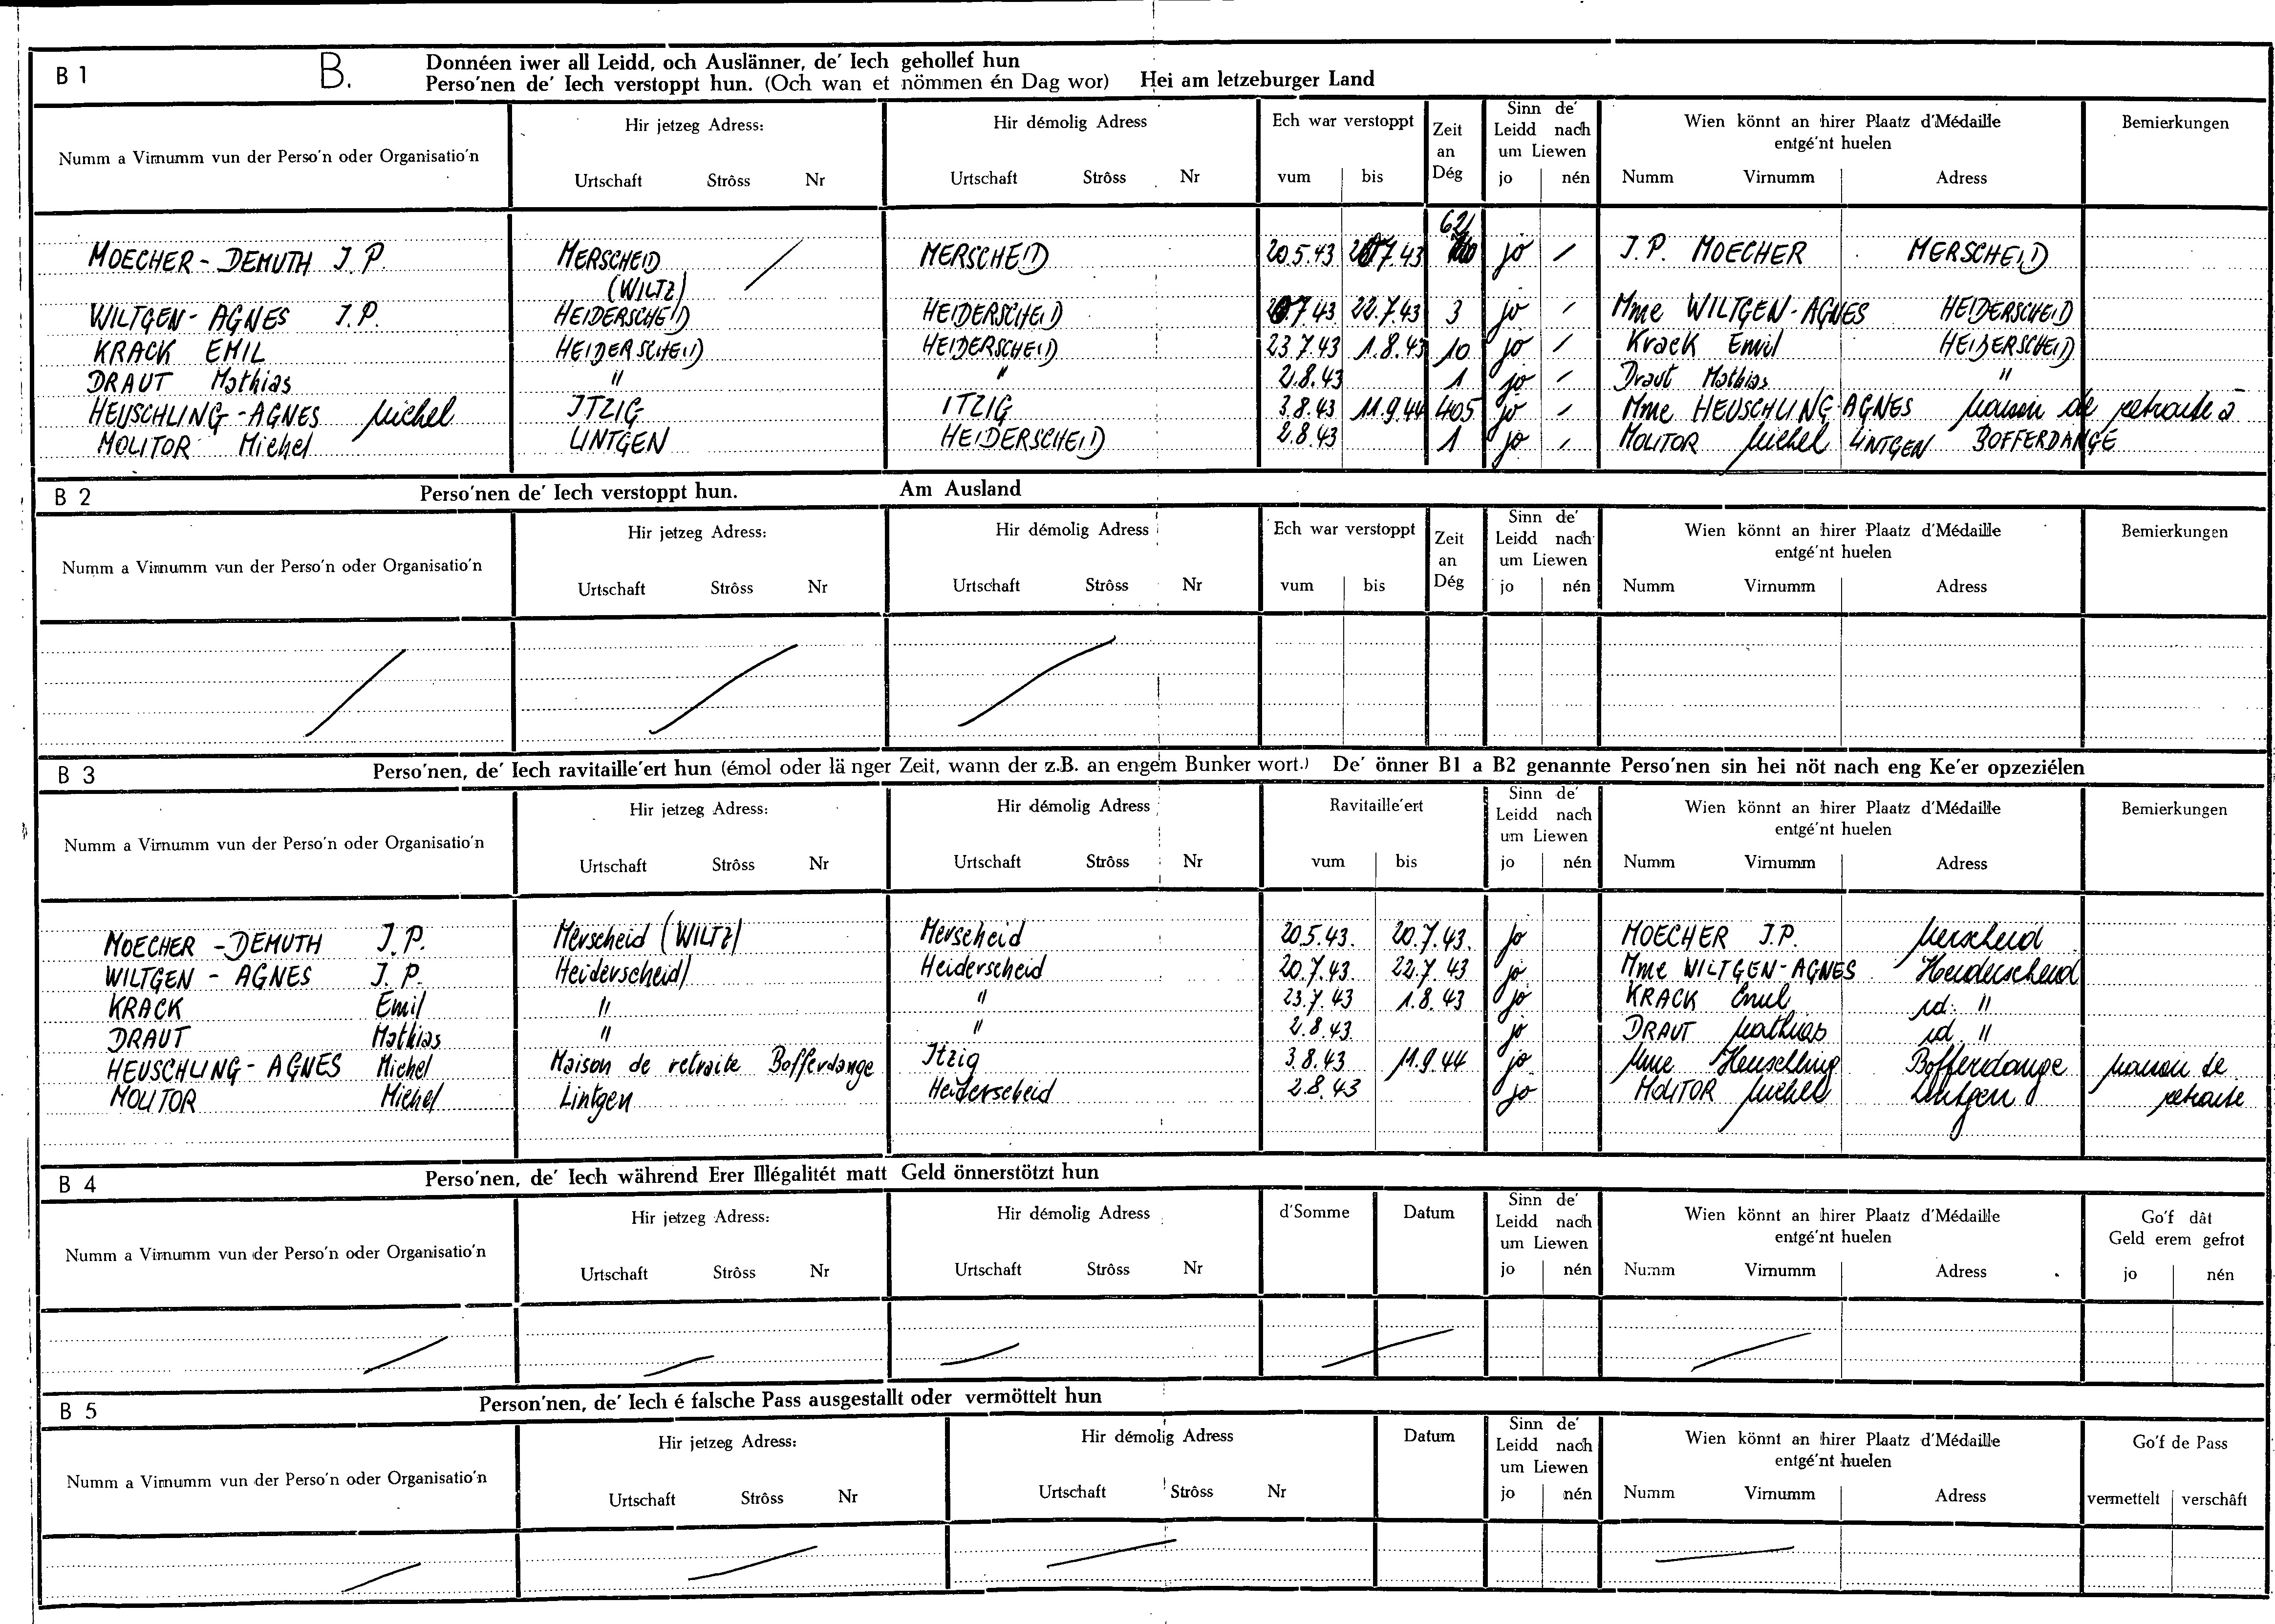 B 1 B. Donnéen iwer all Leidd, och Auslänner, de' Iech gehollef hun
Perso'nen de' Iech verstoppt hun. (Och wan et nömmen én Dag wor) Hei am letzeburger Land
Numm a Virnumm vun der Perso'n oder Organisatio'n
Hir jetzeg Adress:
Urtschaft Strôss Nr
Hir démolig Adress
Urtschaft Strôss Nr
Ech war verstoppt
vum bis
Zeit
an
Dég
Sinn de'
Leidd nach
um Liewen
jo nén
Wien könnt an hirer Plaatz d'Médaille
entgé'nt huelen
Numm Virnumm Adress
Bemierkungen
62
MOECHER - DEMUTH J.P. MERSCHEID MERSCHEID 20.5.43 20.7.43 jo J.P. MOECHER MERSCHEID
(WILTZ)
WILTGEN - AGNES J.P. HEIDERSCHEID HEIDERSCHEID 20.7.43 22.7.43 3 jo Mme WILTGEN-AGNES HEIDERSCHEID
KRACK EMIL HEIDERSCHEID HEIDERSCHEID 23.7.43 1.8.43 10 jo Krack Emil HEIDERSCHEID
DRAUT Mathias " " 2.8.43 1 jo Draut Mathias "
HEUSCHLING - AGNES Michel ITZIG ITZIG 3.8.43 11.9.44 405 jo Mme HEUSCHLING-AGNES Maison de retraite à
MOLITOR Michel LINTGEN HEIDERSCHEID 2.8.43 1 jo MOLITOR Michel LINTGEN BOFFERDANGE
B 2 Perso'nen de' Iech verstoppt hun. Am Ausland
Numm a Virnumm vun der Perso'n oder Organisatio'n
Hir jetzeg Adress:
Urtschaft Strôss Nr
Hir démolig Adress
Urtschaft Strôss Nr
Ech war verstoppt
vum bis
Zeit
an
Dég
Sinn de'
Leidd nach
um Liewen
jo nén
Wien könnt an hirer Plaatz d'Médaille
entgé'nt huelen
Numm Virnumm Adress
Bemierkungen
B 3 Perso'nen, de' Iech ravitaille'ert hun (émol oder länger Zeit, wann der z.B. an engem Bunker wort.) De' önner B1 a B2 genannte Perso'nen sin hei nöt nach eng Ke'er opzeziélen
Numm a Virnumm vun der Perso'n oder Organisatio'n
Hir jetzeg Adress:
Urtschaft Strôss Nr
Hir démolig Adress
Urtschaft Strôss Nr
Ravitaille'ert
vum bis
Sinn de'
Leidd nach
um Liewen
jo nén
Wien könnt an hirer Plaatz d'Médaille
entgé'nt huelen
Numm Virnumm Adress
Bemierkungen
MOECHER - DEMUTH J.P. Merscheid (WILTZ) Merscheid 20.5.43. 20.7.43. jo MOECHER J.P. Merscheid
WILTGEN - AGNES J.P. Heiderscheid Heiderscheid 20.7.43. 22.7.43 jo Mme WILTGEN-AGNES Heiderscheid
KRACK Emil " " 23.7.43 1.8.43 jo KRACK Emil id. "
DRAUT Mathias " " 2.8.43. jo DRAUT Mathias id "
HEUSCHLING - AGNES Michel Maison de retraite Bofferdange Itzig 3.8.43 11.9.44 jo Mme Heuschling Bofferdange maison de
MOLITOR Michel Lintgen Heiderscheid 2.8.43 jo MOLITOR Michel Lintgen retraite
B 4 Perso'nen, de' Iech während Erer Illégalitét matt Geld önnerstötzt hun
Numm a Virnumm vun der Perso'n oder Organisatio'n
Hir jetzeg Adress:
Urtschaft Strôss Nr
Hir démolig Adress
Urtschaft Strôss Nr
d'Somme Datum
Sinn de'
Leidd nach
um Liewen
jo nén
Wien könnt an hirer Plaatz d'Médaille
entgé'nt huelen
Numm Virnumm Adress
Go'f dât
Geld erem gefrot
jo nén
B 5 Person'nen, de' Iech é falsche Pass ausgestallt oder vermöttelt hun
Numm a Virnumm vun der Perso'n oder Organisatio'n
Hir jetzeg Adress:
Urtschaft Strôss Nr
Hir démolig Adress
Urtschaft Strôss Nr
Datum
Sinn de'
Leidd nach
um Liewen
jo nén
Wien könnt an hirer Plaatz d'Médaille
entgé'nt huelen
Numm Virnumm Adress
Go'f de Pass
vermettelt verschâft